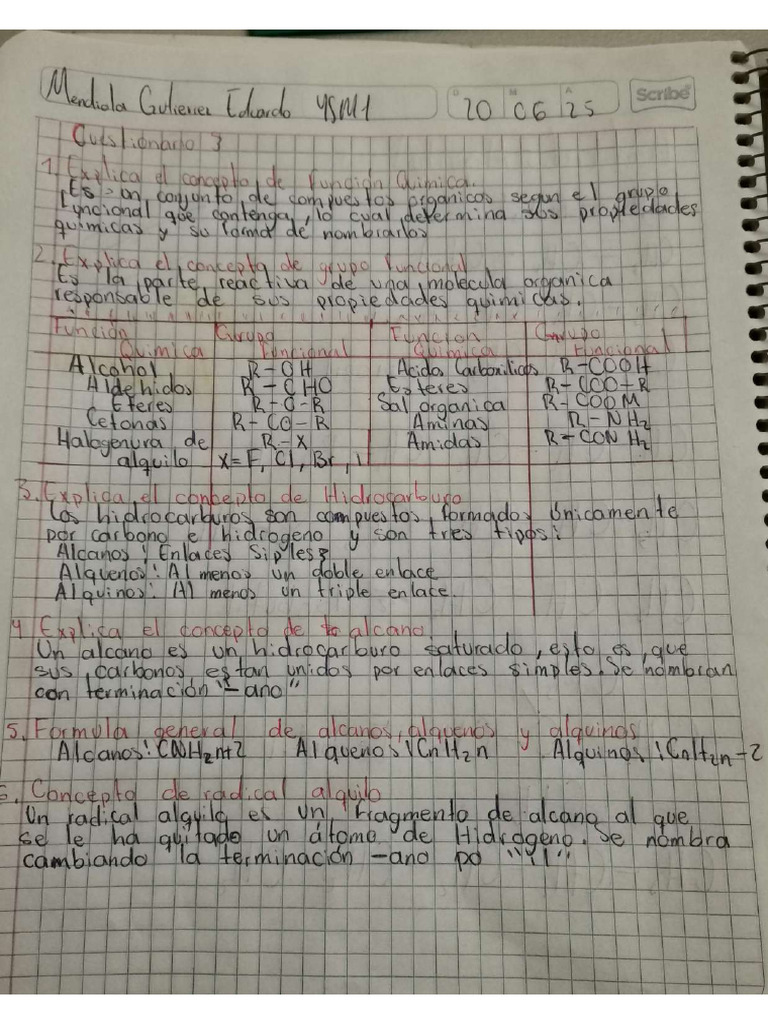 Mendiola Gutierrez Eduardo 4SM1 20 06 25 Scribe
Cuestionario 3
1. Explica el concepto de Función Quimica.
Es un conjunto de compuestos organicos segun el grupo
funcional que contenga, lo cual determina sus propiedades
quimicas y su forma de nombrarlos
2. Explica el concepto de grupo funcional
Es la parte reactiva de una molecula organica
responsable de sus propiedades quimicas.
Función Grupo Funcion Grupo
Quimica Funcional Quimica Funcional
Alcohol R-OH Acidos Carboxilicos R-COOH
Aldehidos R-CHO Esteres R-COO-R
Eteres R-O-R Sal organica R-COOM
Cetonas R-CO-R Aminas R-NH2
Halogenura de R-X Amidas R-CONH2
alquilo X=F, Cl, Br, I
3. Explica el concepto de Hidrocarburo
Los hidrocarburos son compuestos formados únicamente
por carbono e hidrogeno y son tres tipos:
Alcanos: Enlaces Siples
Alquenos: Al menos un doble enlace
Alquinos: Al menos un triple enlace.
4 Explica el concepto de alcano
Un alcano es un hidrocarburo saturado, esto es, que
sus carbonos estan unidos por enlaces simples. Se nombran
con terminación "-ano"
5. Formula general de alcanos, alquenos y alquinos
Alcanos: CNH2n+2 Alquenos: CnH2n Alquinos: CnH2n-2
6. Concepto de radical alquilo
Un radical alquilo es un fragmento de alcano al que
se le ha quitado un átomo de Hidrogeno. Se nombra
cambiando la terminación -ano po "Yl"